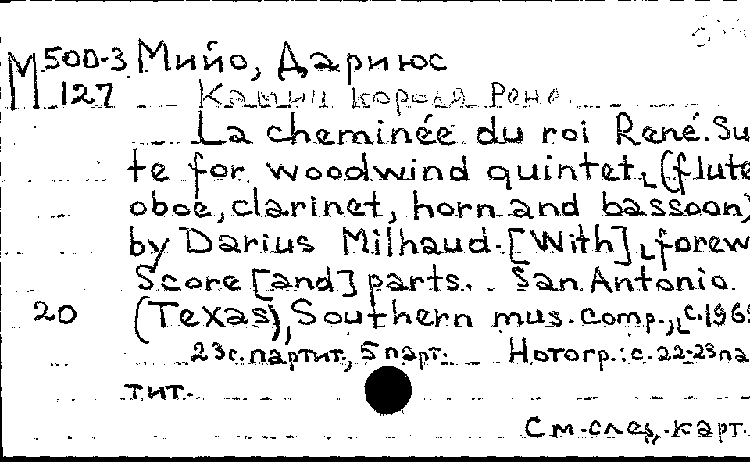 М 500-3 Мийо, Дариюс
127 Камин короля Рене.
La cheminée du roi René. Su
te for woodwind quintet, (flute
oboe, clarinet, horn and bassoon)
by Darius Milhaud. [With] forew
Score [and] parts. San Antonio
20 (Texas), Southern mus. comp., с.196
23 с. партит., 5 парт. Нотогр.: с. 22-23 па
тит.
См. след. карт.